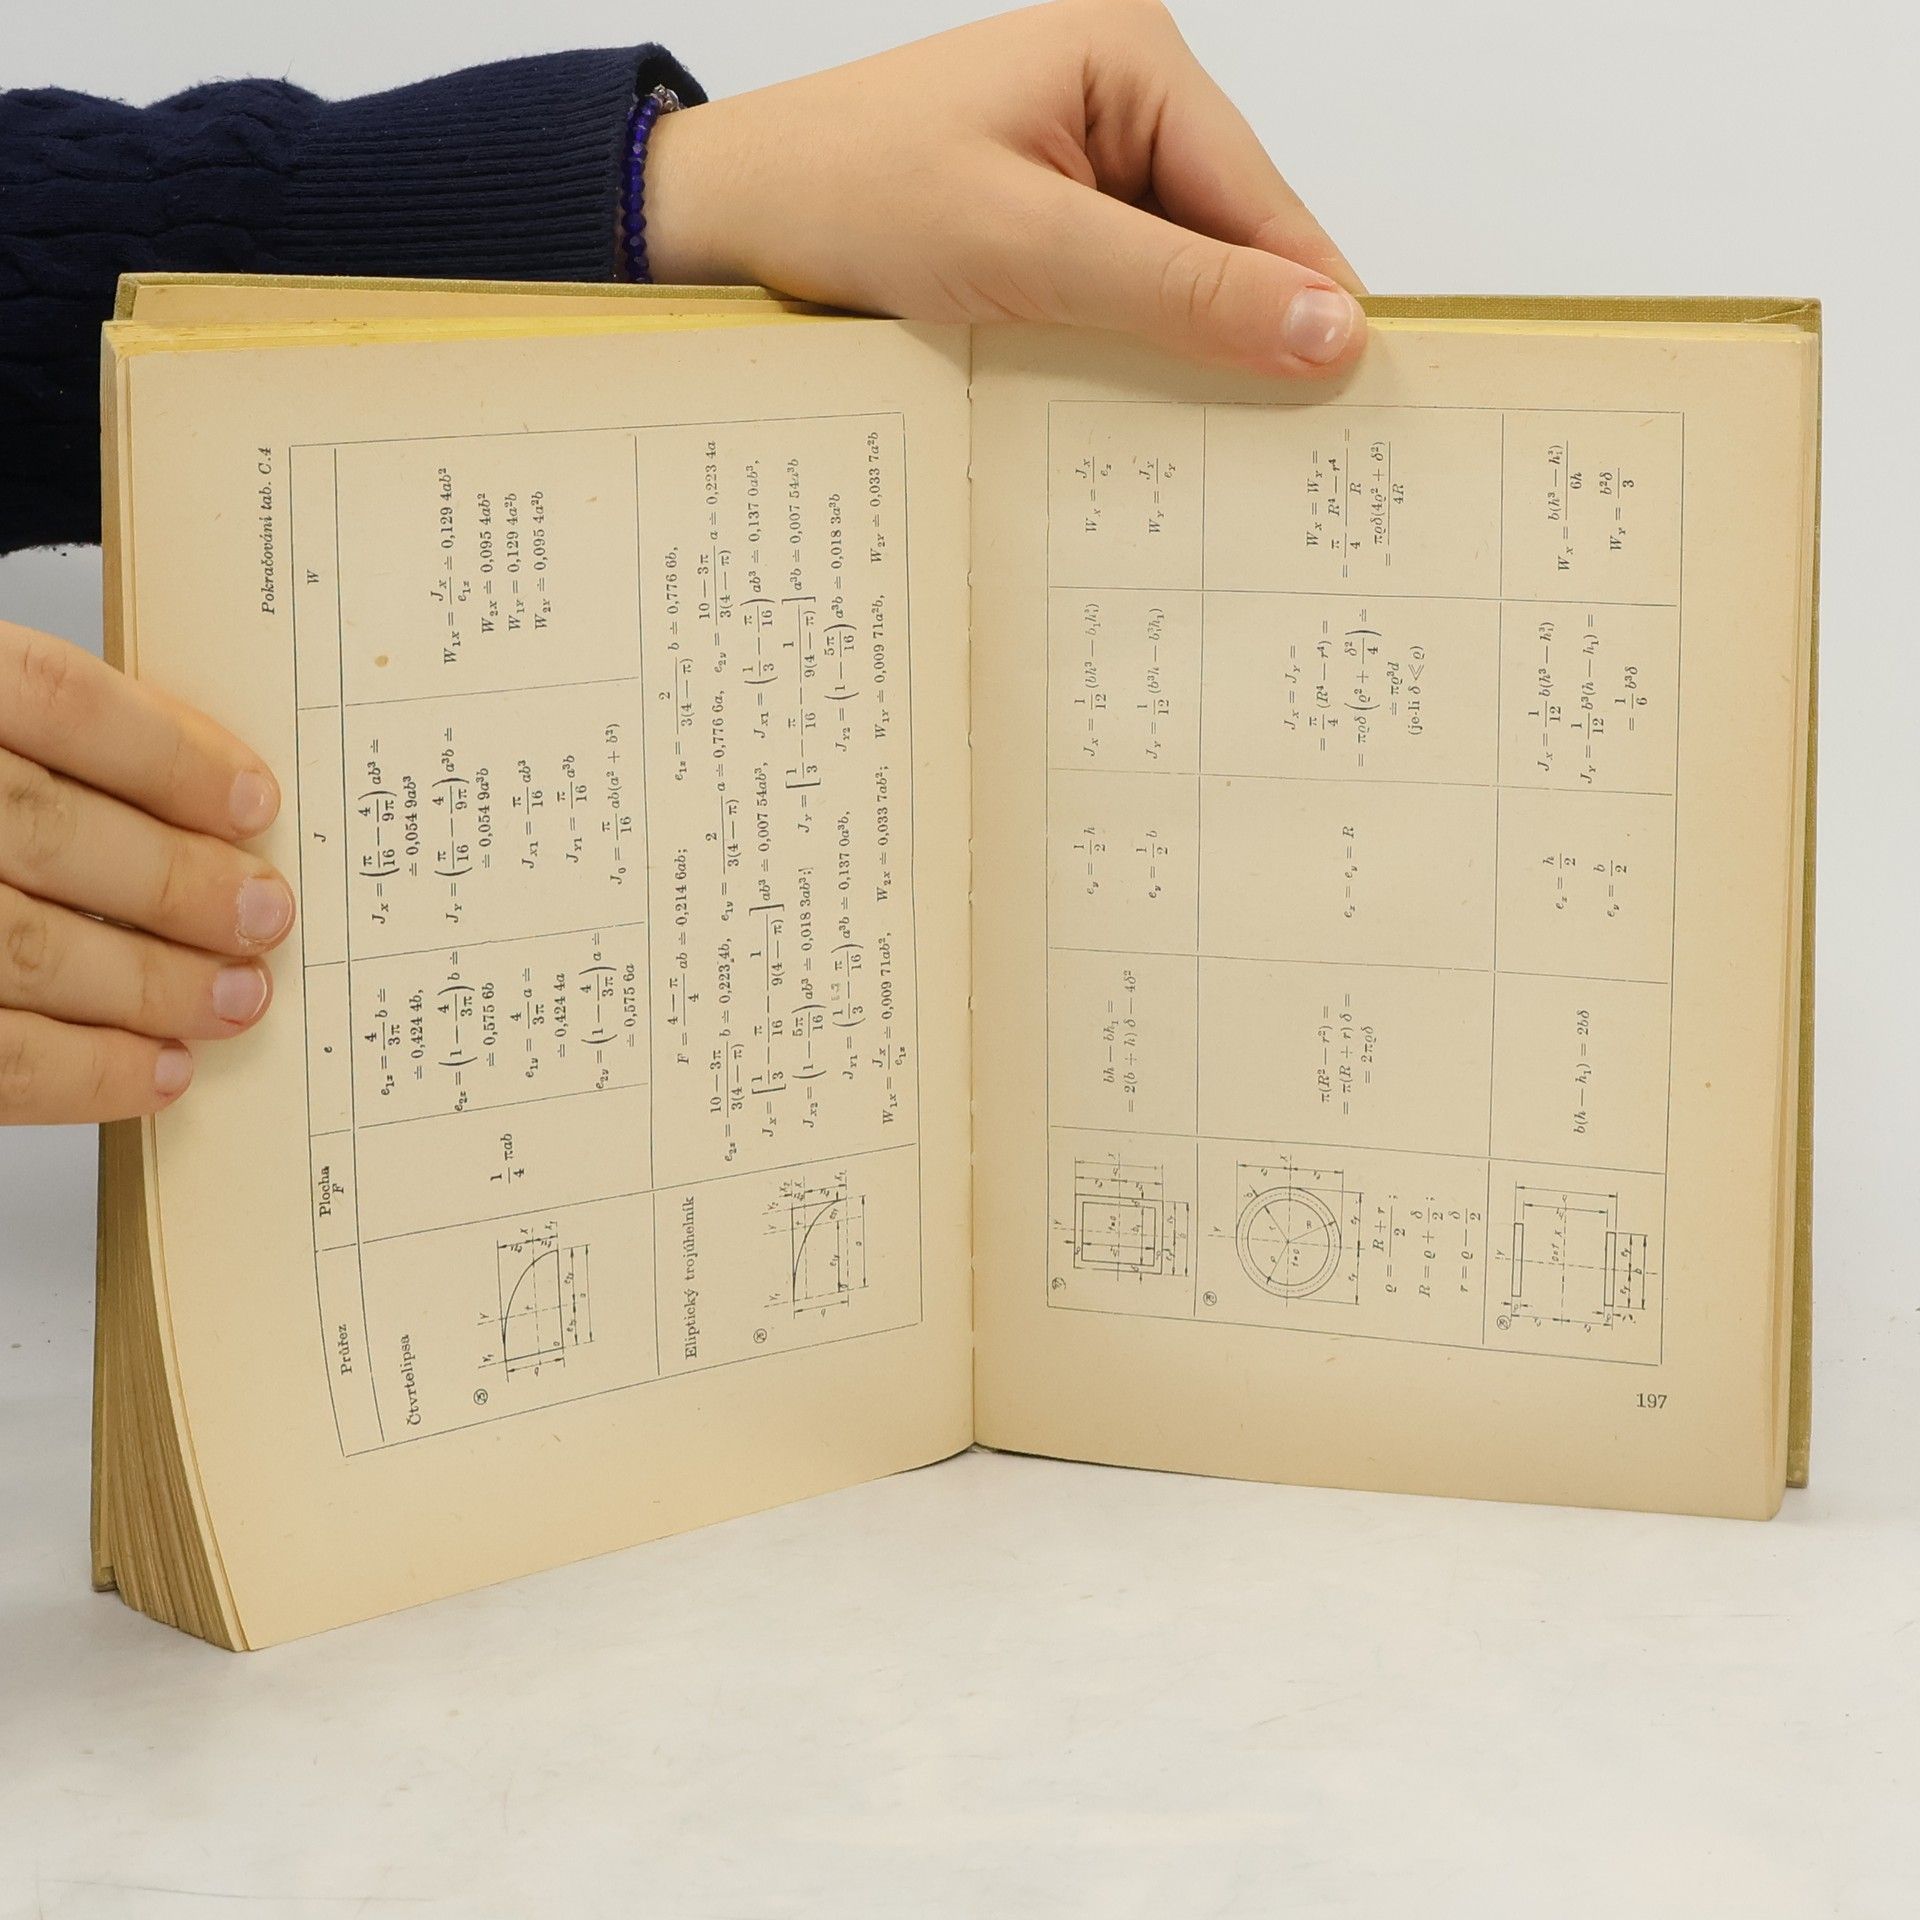 Pokračování tab. C.4
Průřez Plocha F e J W
Čtvrtelipsa
25
1/4 πab
e₁ₓ = 4/3π b ≐
≐ 0,424 4b,
e₂ₓ = (1 − 4/3π) b ≐
≐ 0,575 6b
e₁ᵧ = 4/3π a ≐
≐ 0,424 4a
e₂ᵧ = (1 − 4/3π) a ≐
≐ 0,575 6a
J_X = (π/16 − 4/9π) ab³ ≐
≐ 0,054 9ab³
J_Y = (π/16 − 4/9π) a³b ≐
≐ 0,054 9a³b
J_X1 = π/16 ab³
J_Y1 = π/16 a³b
J₀ = π/16 ab(a² + b²)
W_1X = J_X/e₁ₓ ≐ 0,129 4ab²
W_2X ≐ 0,095 4ab²
W_1Y ≐ 0,129 4a²b
W_2Y ≐ 0,095 4a²b
Eliptický trojúhelník
26
F = 4 − π/4 ab ≐ 0,214 6ab; e₁ₓ = 2/3(4 − π) b ≐ 0,776 6b,
e₂ₓ = 10 − 3π/3(4 − π) b ≐ 0,223 4b, e₁ᵧ = 2/3(4 − π) a ≐ 0,776 6a, e₂ᵧ = 10 − 3π/3(4 − π) a ≐ 0,223 4a
J_X = [1/3 − π/16 − 1/9(4 − π)] ab³ ≐ 0,007 54ab³, J_X1 = (1/3 − π/16) ab³ ≐ 0,137 0ab³,
J_X2 = (1 − 5π/16) ab³ ≐ 0,018 3ab³; J_Y = [1/3 − π/16 − 1/9(4 − π)] a³b ≐ 0,007 54a³b
J_Y1 = (1/3 − π/16) a³b ≐ 0,137 0a³b, J_Y2 = (1 − 5π/16) a³b ≐ 0,018 3a³b
W_1X = J_X/e₁ₓ ≐ 0,009 71ab², W_2X ≐ 0,033 7ab²; W_1Y ≐ 0,009 71a²b, W_2Y ≐ 0,033 7a²b
bh − bh₁ =
= 2(b + h) δ − 4δ²
eᵧ = 1/2 h
eᵧ = 1/2 b
J_X = 1/12 (bh³ − b₁h₁³)
J_Y = 1/12 (b³h − b₁³h₁)
W_X = J_X/eₓ
W_Y = J_Y/eᵧ
28
ϱ = R + r/2 ;
R = ϱ + δ/2 ;
r = ϱ − δ/2
π(R² − r²) =
= π(R + r) δ =
= 2πϱδ
eₓ = eᵧ = R
J_X = J_Y =
= π/4 (R⁴ − r⁴) =
= πϱδ (ϱ² + δ²/4) ≐
≐ πϱ³d
(je-li δ ≪ ϱ)
W_X = W_Y =
= π/4 R⁴ − r⁴/R =
= πϱδ(4ϱ² + δ²)/4R
29
b(h − h₁) = 2bδ
eₓ = h/2
eᵧ = b/2
J_X = 1/12 b(h³ − h₁³)
J_Y = 1/12 b³(h − h₁) =
= 1/6 b³δ
W_X = b(h³ − h₁³)/6h
W_Y = b²δ/3
197